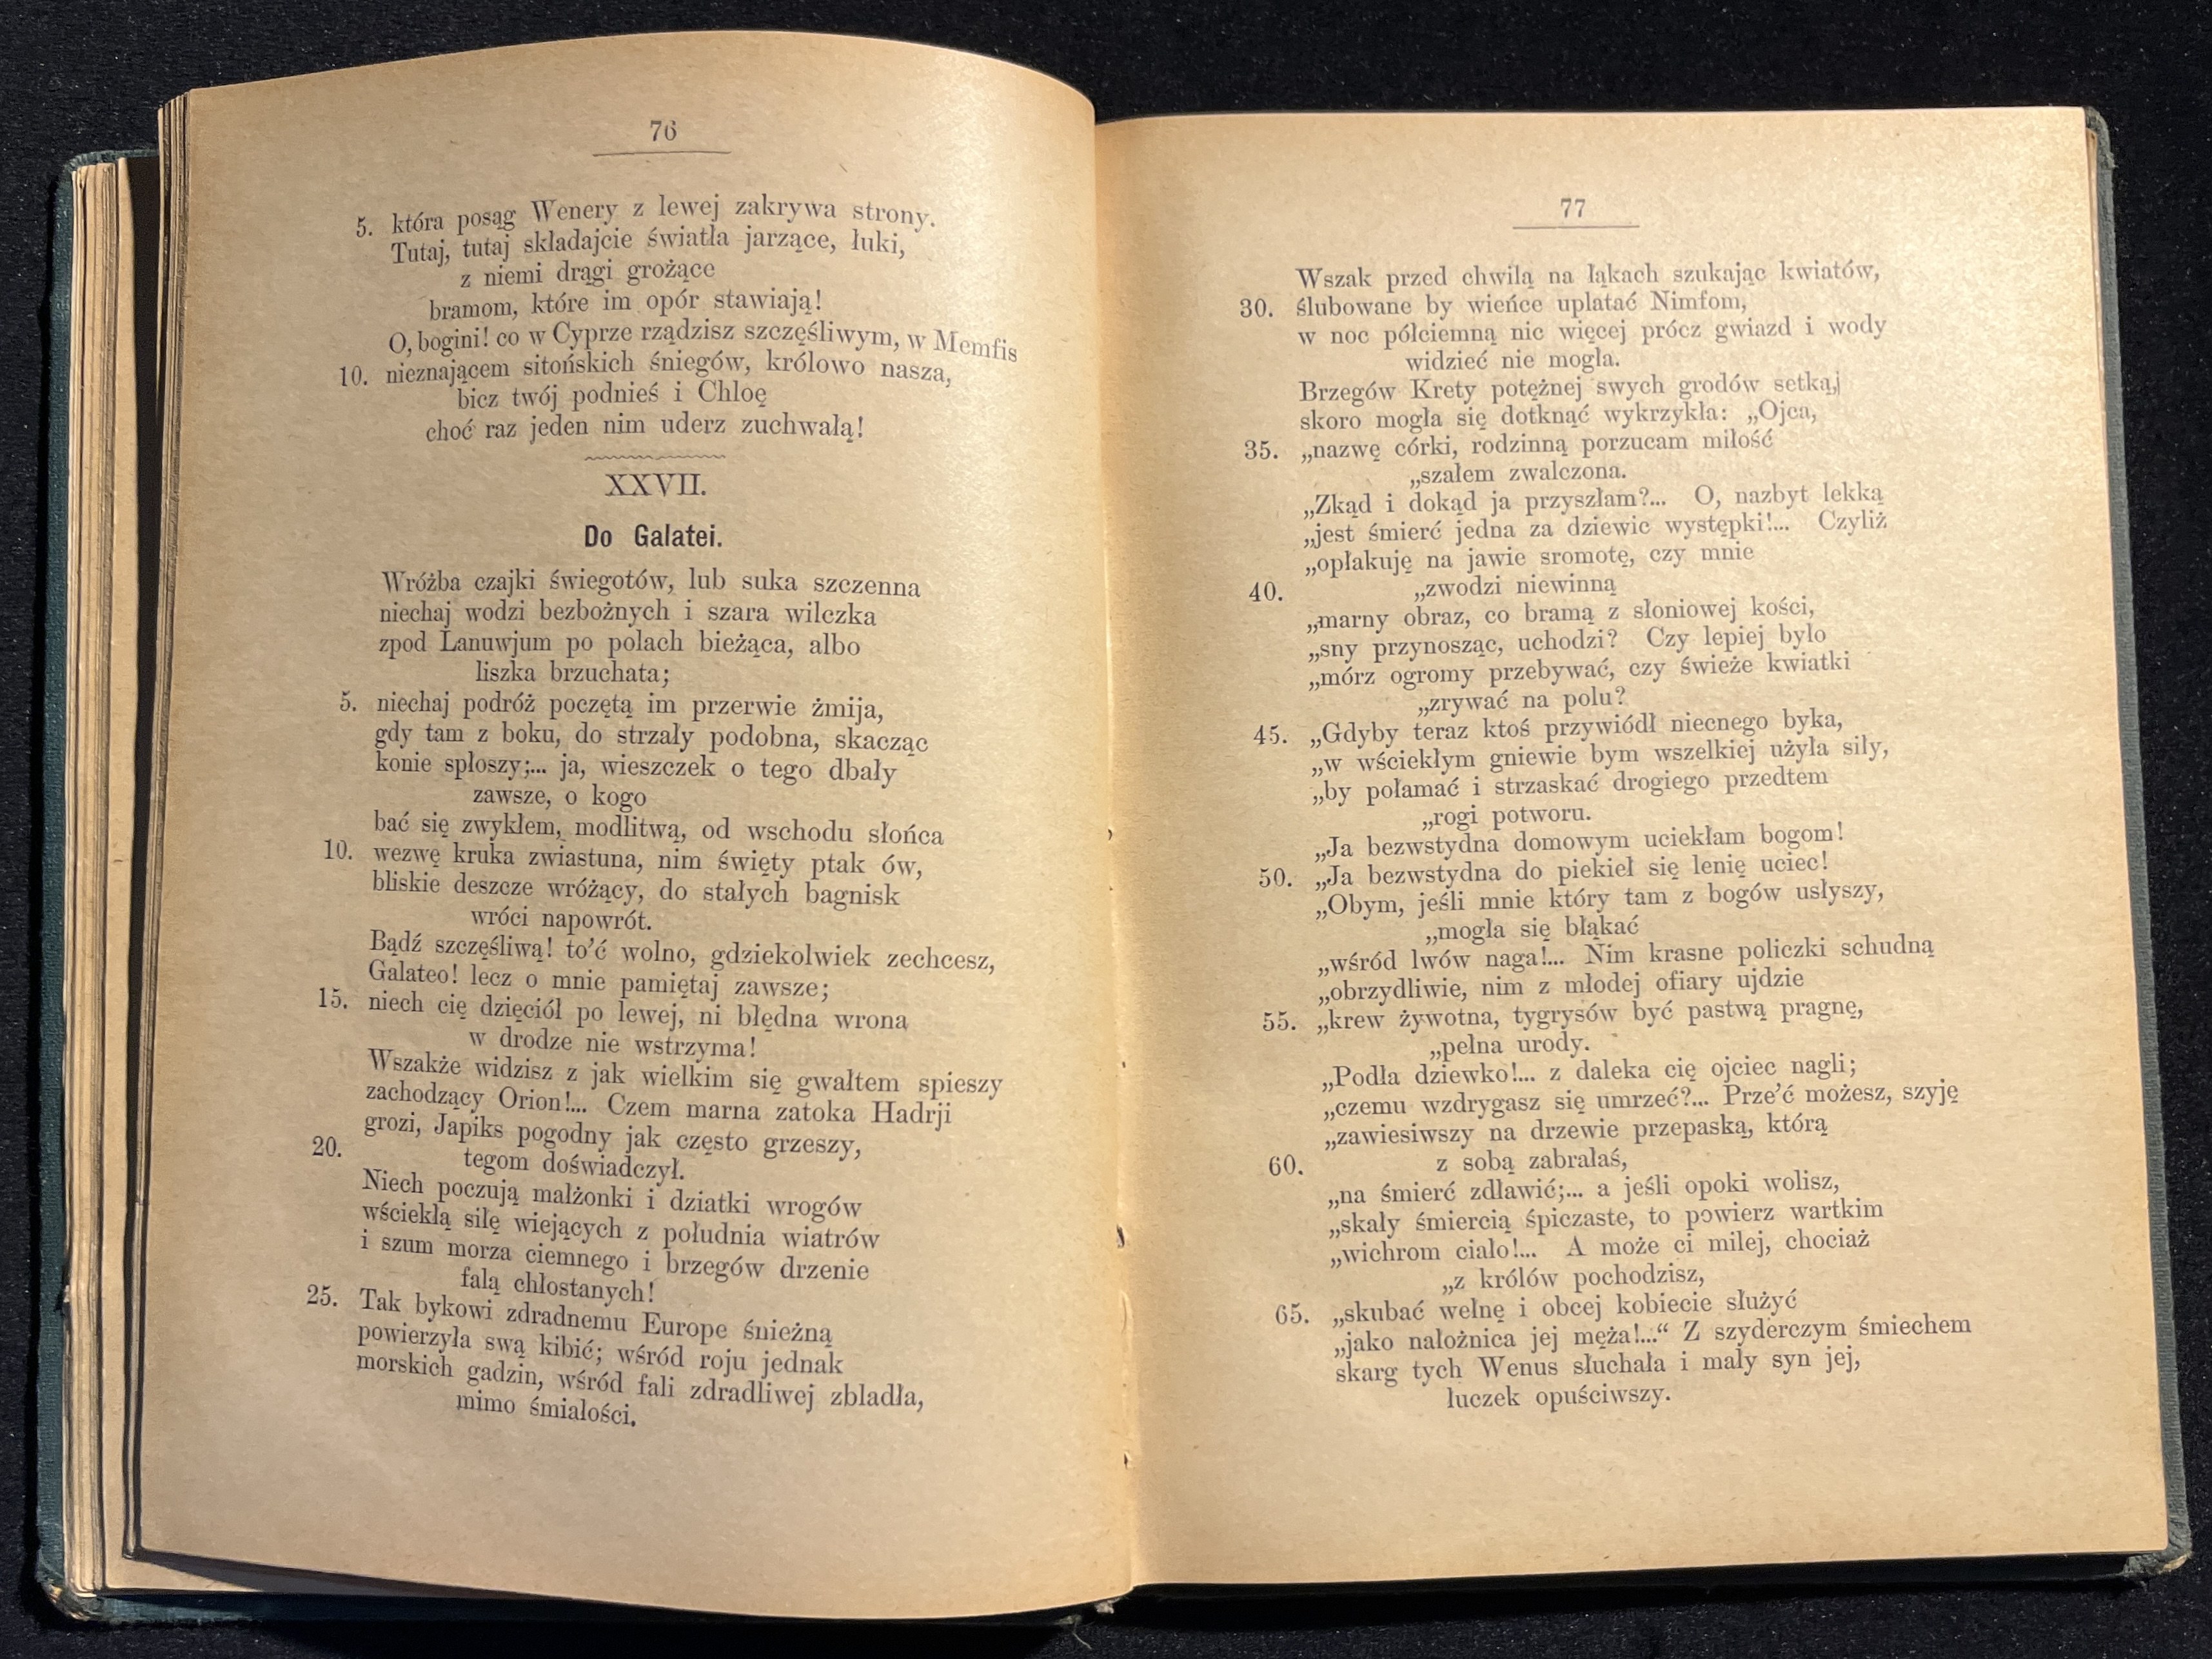 76
5. która posąg Wenery z lewej zakrywa strony.
Tutaj, tutaj składajcie światła jarzące, łuki,
z niemi drągi grożące
bramom, które im opór stawiają!
O, bogini! co w Cyprze rządzisz szczęśliwym, w Memfis
10. nieznającem sitońskich śniegów, królowo nasza,
bicz twój podnieś i Chloę
choć raz jeden nim uderz zuchwałą!
XXVII.
Do Galatei.
Wróżba czajki świegotów, lub suka szczenna
niechaj wodzi bezbożnych i szara wilczka
zpod Lanuwjum po polach bieżąca, albo
liszka brzuchata;
5. niechaj podróż poczętą im przerwie żmija,
gdy tam z boku, do strzały podobna, skacząc
konie spłoszy;... ja, wieszczek o tego dbały
zawsze, o kogo
bać się zwykłem, modlitwą, od wschodu słońca
10. wezwę kruka zwiastuna, nim święty ptak ów,
bliskie deszcze wróżący, do stałych bagnisk
wróci napowrót.
Bądź szczęśliwą! to'ć wolno, gdziekolwiek zechcesz,
Galateo! lecz o mnie pamiętaj zawsze;
15. niech cię dzięciół po lewej, ni błędna wrona
w drodze nie wstrzyma!
Wszakże widzisz z jak wielkim się gwałtem spieszy
zachodzący Orion!... Czem marna zatoka Hadrji
grozi, Japiks pogodny jak często grzeszy,
20. tegom doświadczył.
Niech poczują małżonki i dziatki wrogów
wściekłą siłę wiejących z południa wiatrów
i szum morza ciemnego i brzegów drzenie
falą chłostanych!
25. Tak bykowi zdradnemu Europe śnieżną
powierzyła swą kibić; wśród roju jednak
morskich gadzin, wśród fali zdradliwej zbladła,
mimo śmiałości.
77
Wszak przed chwilą na łąkach szukając kwiatów,
30. ślubowane by wieńce uplatać Nimfom,
w noc półciemną nic więcej prócz gwiazd i wody
widzieć nie mogła.
Brzegów Krety potężnej swych grodów setką,
skoro mogła się dotknąć wykrzykła: „Ojca,
35. „nazwę córki, rodzinną porzucam miłość
„szałem zwalczona.
„Zkąd i dokąd ja przyszłam?... O, nazbyt lekką
„jest śmierć jedna za dziewic występki!... Czyliż
„opłakuję na jawie sromotę, czy mnie
40. „zwodzi niewinną
„marny obraz, co bramą z słoniowej kości,
„sny przynosząc, uchodzi? Czy lepiej było
„mórz ogromy przebywać, czy świeże kwiatki
„zrywać na polu?
45. „Gdyby teraz ktoś przywiódł niecnego byka,
„w wściekłym gniewie bym wszelkiej użyła siły,
„by połamać i strzaskać drogiego przedtem
„rogi potworu.
„Ja bezwstydna domowym uciekłam bogom!
50. „Ja bezwstydna do piekieł się lenię uciec!
„Obym, jeśli mnie który tam z bogów usłyszy,
„mogła się błąkać
„wśród lwów naga!... Nim krasne policzki schudną
„obrzydliwie, nim z młodej ofiary ujdzie
55. „krew żywotna, tygrysów być pastwą pragnę,
„pełna urody.
„Podła dziewko!... z daleka cię ojciec nagli;
„czemu wzdrygasz się umrzeć?... Prze'ć możesz, szyję
„zawiesiwszy na drzewie przepaską, którą
60. z sobą zabrałaś,
„na śmierć zdławić;... a jeśli opoki wolisz,
„skały śmiercią śpiczaste, to powierz wartkim
„wichrom ciało!... A może ci milej, chociaż
„z królów pochodzisz,
65. „skubać wełnę i obcej kobiecie służyć
„jako nałożnica jej męża!...“ Z szyderczym śmiechem
skarg tych Wenus słuchała i mały syn jej,
łuczek opuściwszy.